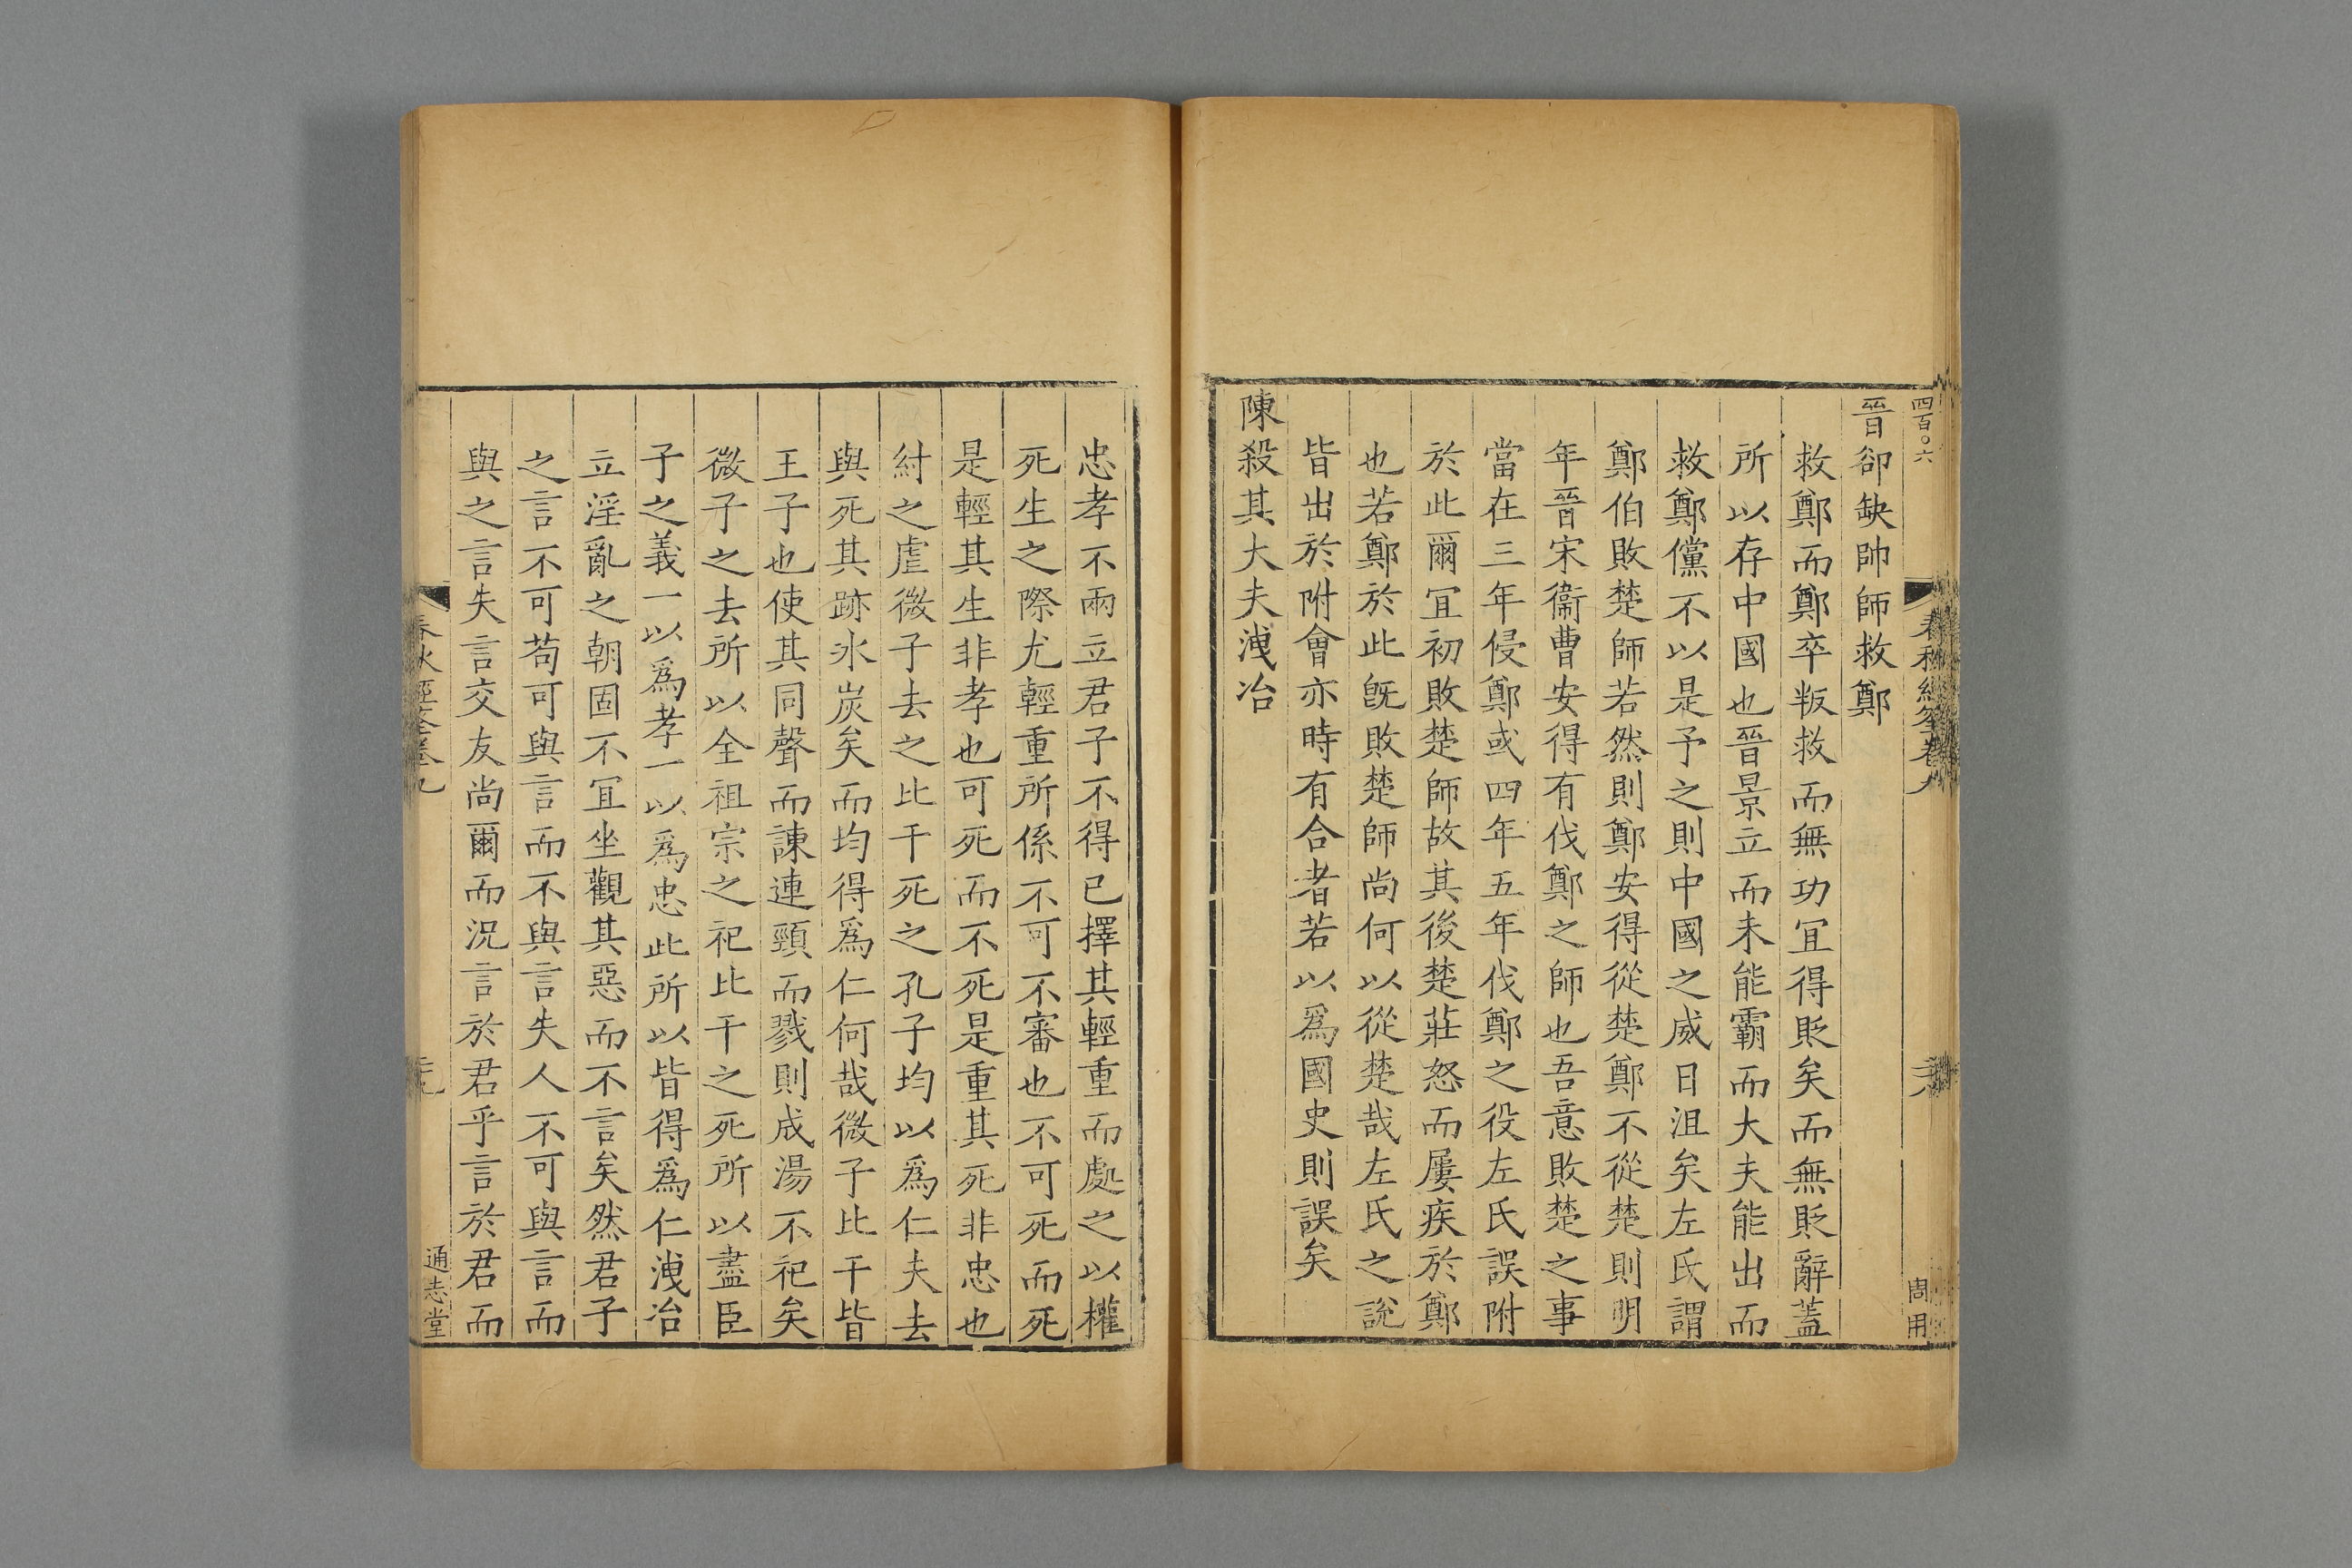 四百○六
春秋經筌卷九
周用
晉郤缺帥師救鄭
救鄭而鄭卒叛救而無功冝得貶矣而無貶辭蓋
所以存中國也晉景立而未能霸而大夫能出而
救鄭儻不以是予之則中國之威日沮矣左氏謂
鄭伯敗楚師若然則鄭安得從楚鄭不從楚則明
年晉宋衞曹安得有伐鄭之師也吾意敗楚之事
當在三年侵鄭或四年五年伐鄭之役左氏誤附
於此爾冝初敗楚師故其後楚莊怒而屢疾於鄭
也若鄭於此旣敗楚師尚何以從楚哉左氏之說
皆出於附會亦時有合者若以爲國史則誤矣
陳殺其大夫洩冶
忠孝不兩立君子不得已擇其輕重而處之以權
死生之際尤輕重所係不可不審也不可死而死
是輕其生非孝也可死而不死是重其死非忠也
紂之虐微子去之比干死之孔子均以爲仁夫去
與死其跡氷炭矣而均得爲仁何哉微子比干皆
王子也使其同聲而諫連頸而戮則成湯不祀矣
微子之去所以全祖宗之祀比干之死所以盡臣
子之義一以爲孝一以爲忠此所以皆得爲仁洩冶
立淫亂之朝固不冝坐觀其惡而不言矣然君子
之言不可苟可與言而不與言失人不可與言而
與之言失言交友尚爾而況言於君乎言於君而
春秋經筌卷九
通志堂